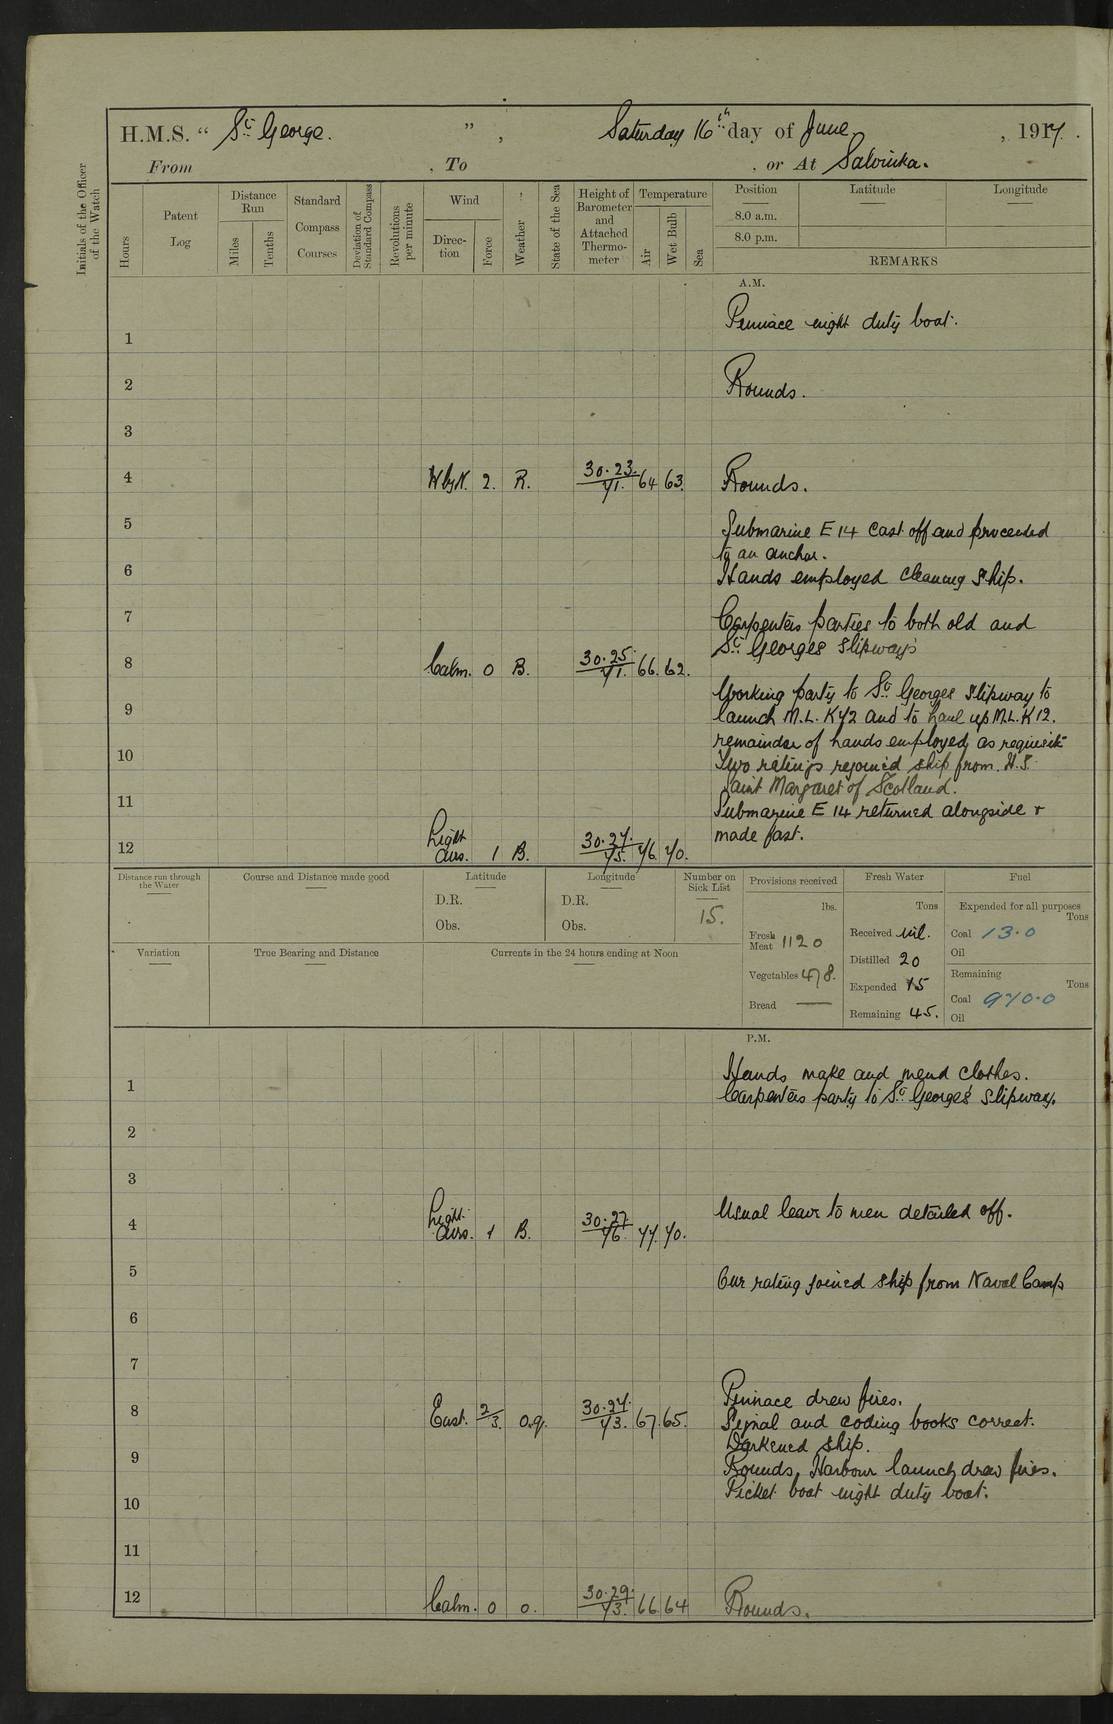 H.M.S. “ St George. ” , Saturday 16th day of June , 1917.
From , To , or At Salonika.
Initials of the Officer of the Watch
Hours
Patent Log
Distance Run
Miles
Tenths
Standard Compass Courses
Deviation of Standard Compass
Revolutions per minute
Wind
Direction
Force
Weather
State of the Sea
Height of Barometer and Attached Thermometer
Temperature
Air
Wet Bulb
Sea
Position
8.0 a.m.
8.0 p.m.
Latitude
Longitude
REMARKS
A.M.
1 Pinnace night duty boat.
2 Rounds.
3
4 W by N. 2. R. 30.23. 71. 64 63. Rounds.
5 Submarine E 14 cast off and proceeded
to an anchor.
6 Hands employed cleaning ship.
7 Carpenters parties to both old and
St Georges slipways
8 Calm. 0 B. 30.25. 71. 66. 62.
Working party to St Georges slipway to
9 launch M.L. K72 and to haul up M.L. K12.
remainder of hands employed as requisite
10 Two ratings rejoined ship from H.S.
Saint Margaret of Scotland.
11 Submarine E 14 returned alongside +
made fast.
12 Light Airs. 1 B. 30.27. 75. 76. 70.
Distance run through the Water
Course and Distance made good
Latitude
D.R.
Obs.
Longitude
D.R.
Obs.
Number on Sick List
15.
Provisions received
lbs.
Fresh Meat 1120
Vegetables 478.
Bread —
Fresh Water
Tons
Received nil.
Distilled 20
Expended 15
Remaining 45.
Fuel
Expended for all purposes
Tons
Coal 13.0
Oil
Remaining
Tons
Coal 970.0
Oil
Variation
True Bearing and Distance
Currents in the 24 hours ending at Noon
P.M.
1 Hands make and mend clothes.
Carpenters party to St Georges slipway.
2
3
4 Light Airs. 1 B. 30.27 76. 77. 70. Usual leave to men detailed off.
5 One rating joined ship from Naval Camp
6
7
Pinnace drew fires.
8 East. 2/3. o.q. 30.27. 73. 67. 65. Signal and coding books correct.
Darkened ship.
9 Rounds, Harbour launch drew fires.
Picket boat night duty boat.
10
11
12 Calm. 0 o. 30.29. 73. 66 64 Rounds.